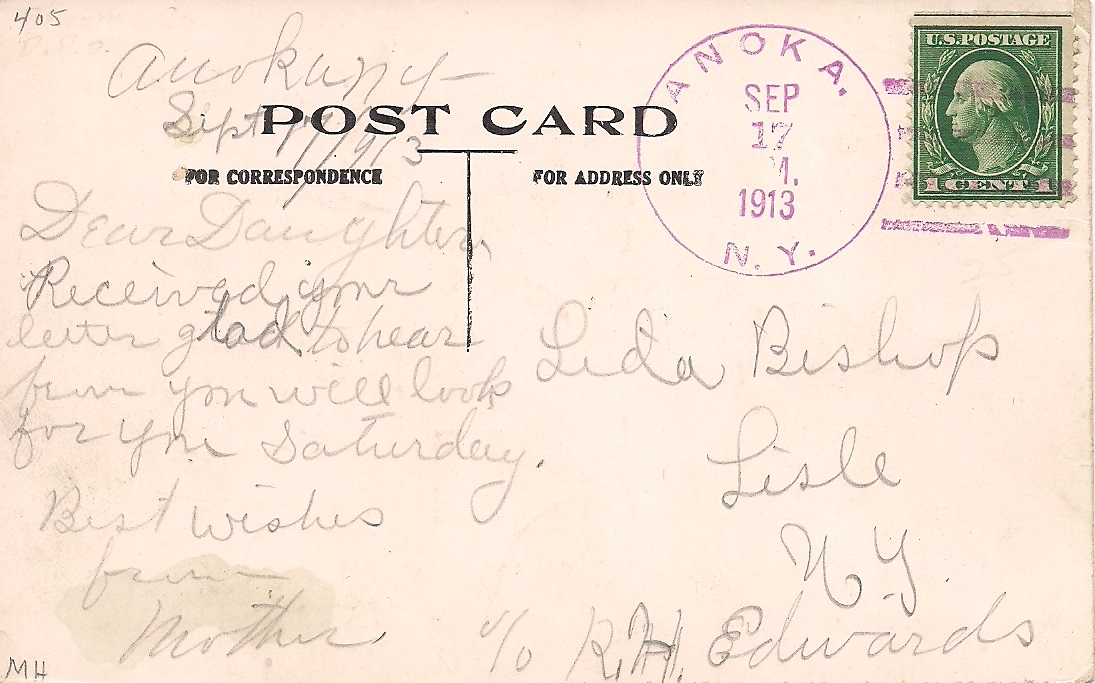 405
Anoka N Y
Sept 17/1913
POST CARD
FOR CORRESPONDENCE
FOR ADDRESS ONLY
Dear Daughter,
Received your
letter glad to hear
from you will look
for you Saturday.
Best wishes
from
Mother
MH
ANOKA.
SEP
17
M.
1913
N.Y.
U.S.POSTAGE
1 CENT 1
Leda Bishop
Lisle
N Y
c/o R.H. Edwards